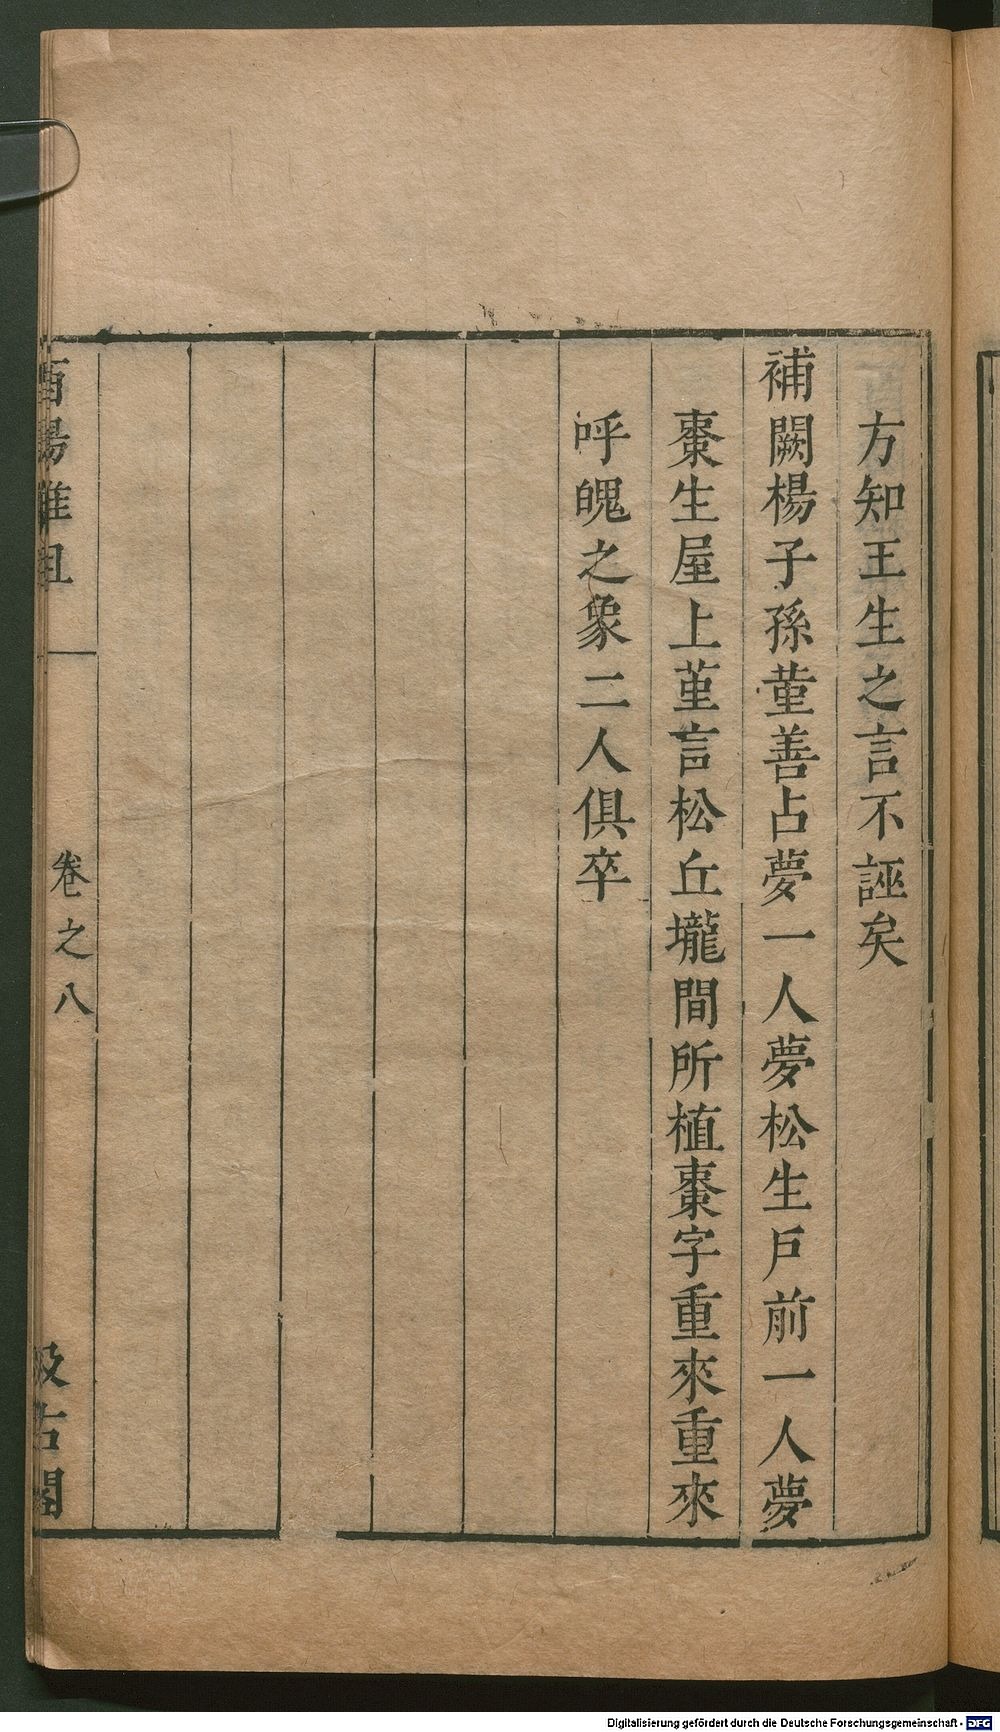 方知王生之言不誣矣
補闕楊子孫堇善占夢一人夢松生戸前一人夢
棗生屋上堇言松丘壠間所植棗字重來重來
呼魄之象二人俱卒
酉陽雜俎
卷之八
汲古閣
Digitalisierung gefördert durch die Deutsche Forschungsgemeinschaft - DFG